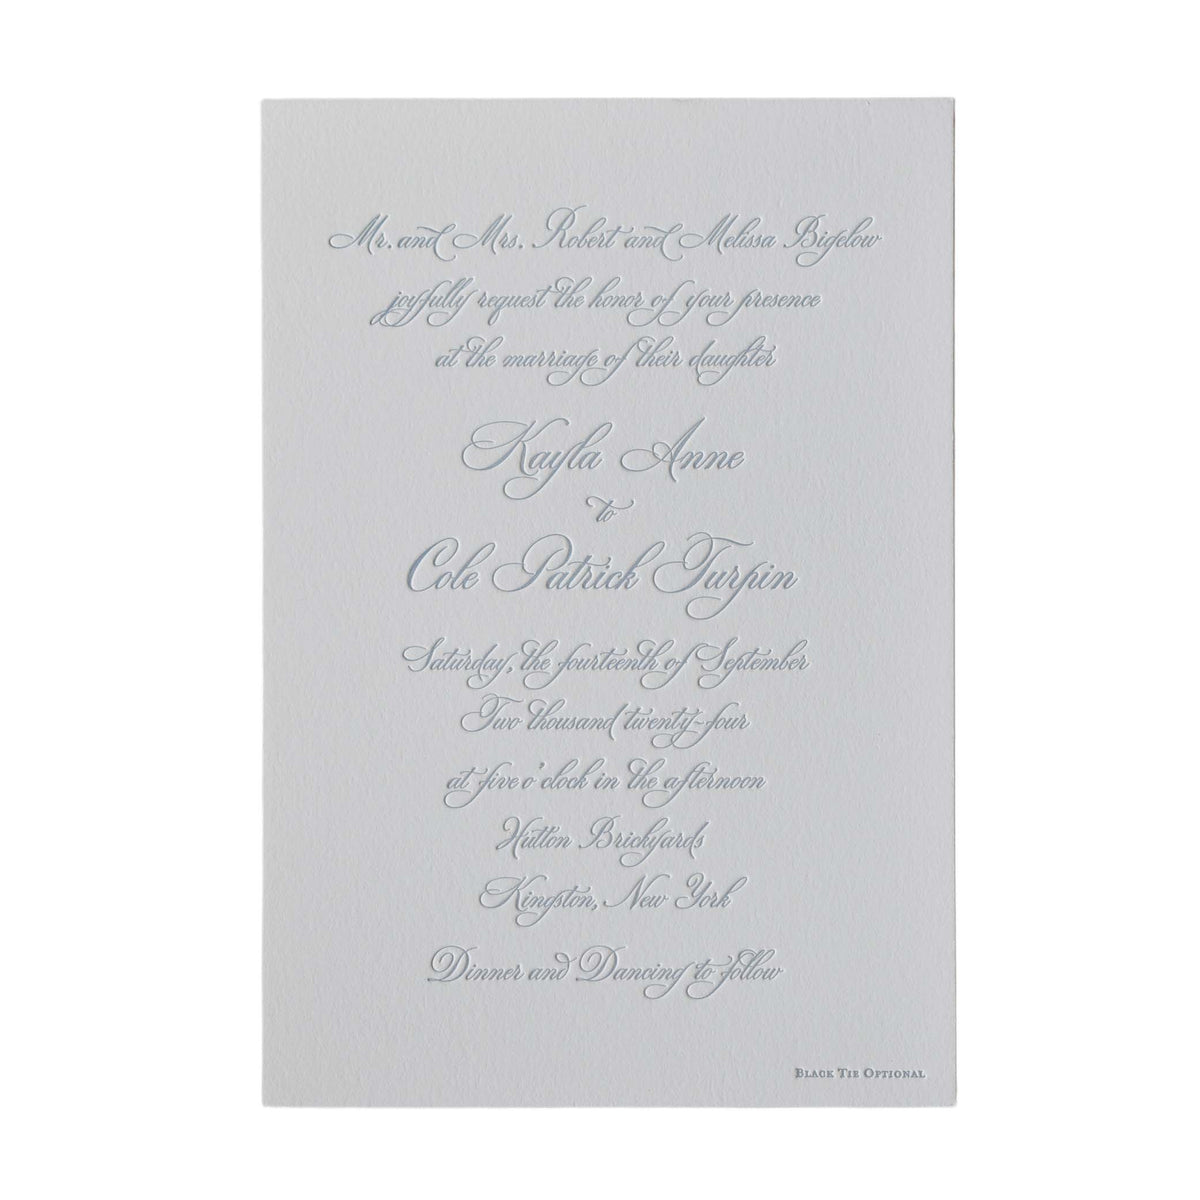 Mr. and Mrs. Robert and Melissa Bigelow
joyfully request the honor of your presence
at the marriage of their daughter
Kayla Anne
to
Cole Patrick Turpin
Saturday, the fourteenth of September
Two thousand twenty-four
at five o'clock in the afternoon
Hutton Brickyards
Kingston, New York
Dinner and Dancing to follow
Black Tie Optional